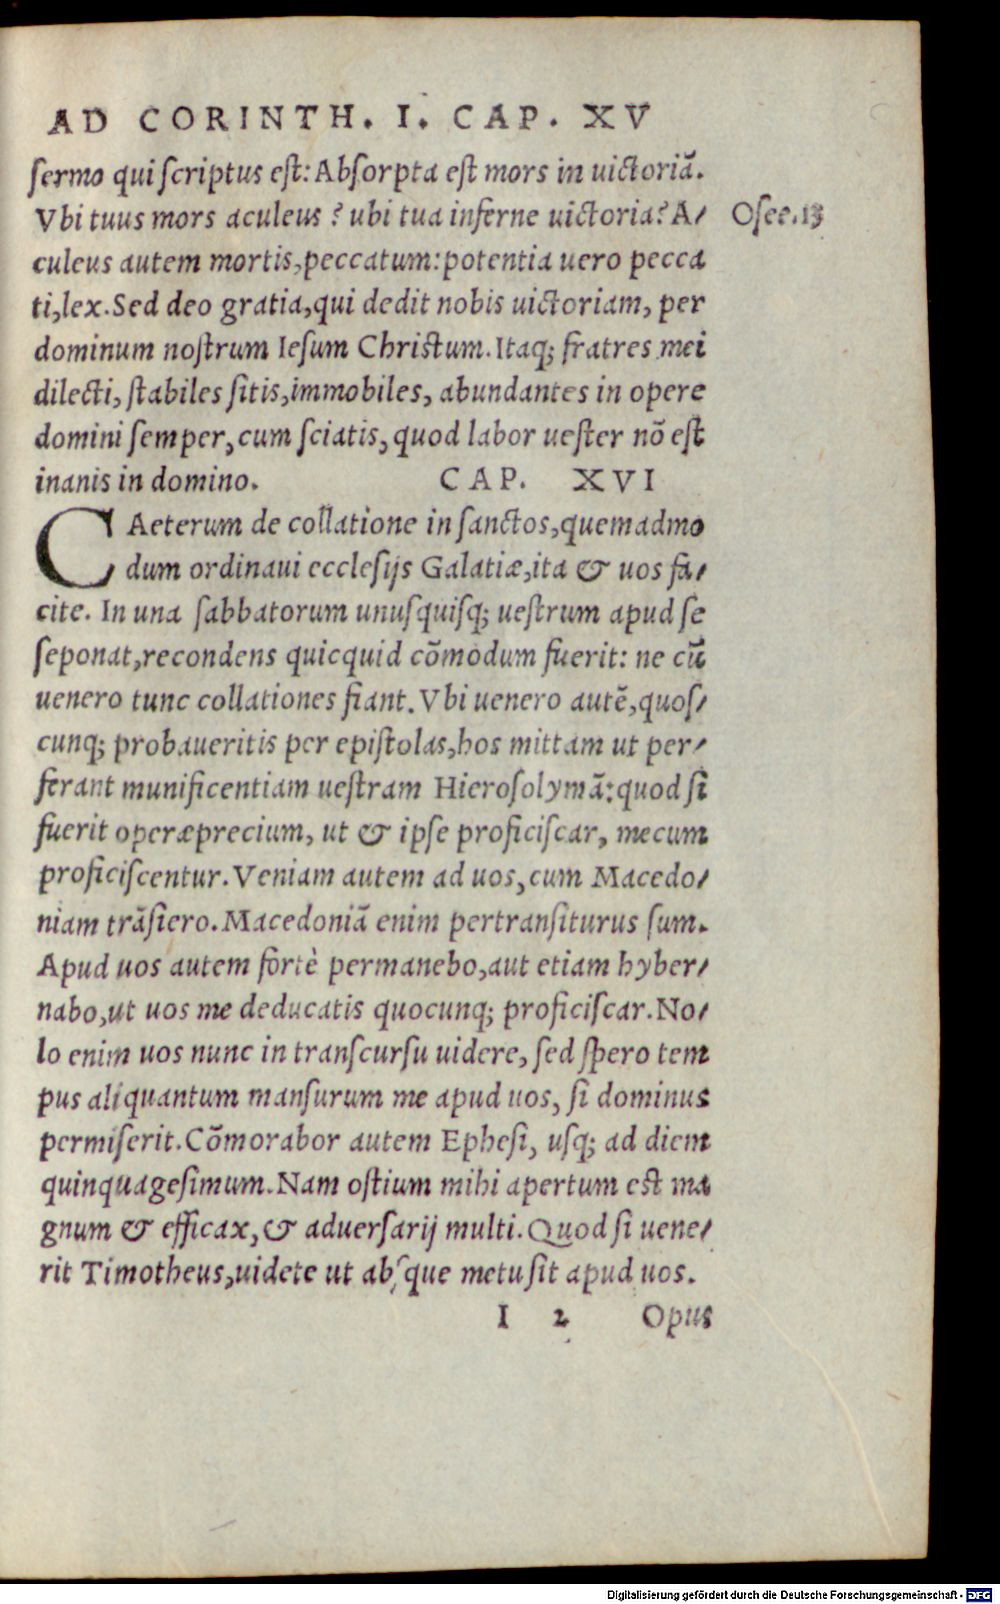 AD CORINTH. I. CAP. XV
sermo qui scriptus est: Absorpta est mors in uictoriã.
Vbi tuus mors aculeus? ubi tua inferne uictoria? A/ Osee.13
culeus autem mortis, peccatum: potentia uero pecca
ti, lex. Sed deo gratia, qui dedit nobis uictoriam, per
dominum nostrum Iesum Christum. Itaq; fratres mei
dilecti, stabiles sitis, immobiles, abundantes in opere
domini semper, cum sciatis, quod labor uester nõ est
inanis in domino. CAP. XVI
CAeterum de collatione in sanctos, quemadmo
dum ordinaui ecclesijs Galatiæ, ita & uos fa/
cite. In una sabbatorum unusquisq; uestrum apud se
seponat, recondens quicquid cõmodum fuerit: ne cũ
uenero tunc collationes fiant. Vbi uenero autẽ, quos/
cunq; probaueritis per epistolas, hos mittam ut per/
ferant munificentiam uestram Hierosolymã: quod si
fuerit operæprecium, ut & ipse proficiscar, mecum
proficiscentur. Veniam autem ad uos, cum Macedo/
niam trãsiero. Macedoniã enim pertransiturus sum.
Apud uos autem fortè permanebo, aut etiam hyber/
nabo, ut uos me deducatis quocunq; proficiscar. No/
lo enim uos nunc in transcursu uidere, sed spero tem
pus aliquantum mansurum me apud uos, si dominus
permiserit. Cõmorabor autem Ephesi, usq; ad diem
quinquagesimum. Nam ostium mihi apertum est ma
gnum & efficax, & aduersarij multi. Quod si uene/
rit Timotheus, uidete ut absque metu sit apud uos.
I 2 Opus
Digitalisierung gefördert durch die Deutsche Forschungsgemeinschaft - DFG